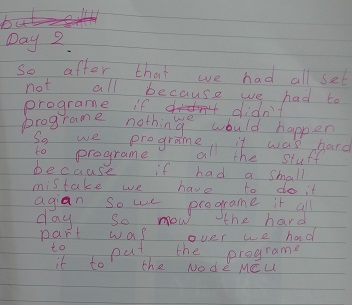 Day 2.
So after that we had all set
not all because we had to
programe if didn't
programe nothing we would happen
So we programe it was hard
to programe all the stuff
because if had a small
mistake we have to do it
agian so we programe it all
day so now the hard
part was over we had
to put the programe
it to the Node MCU